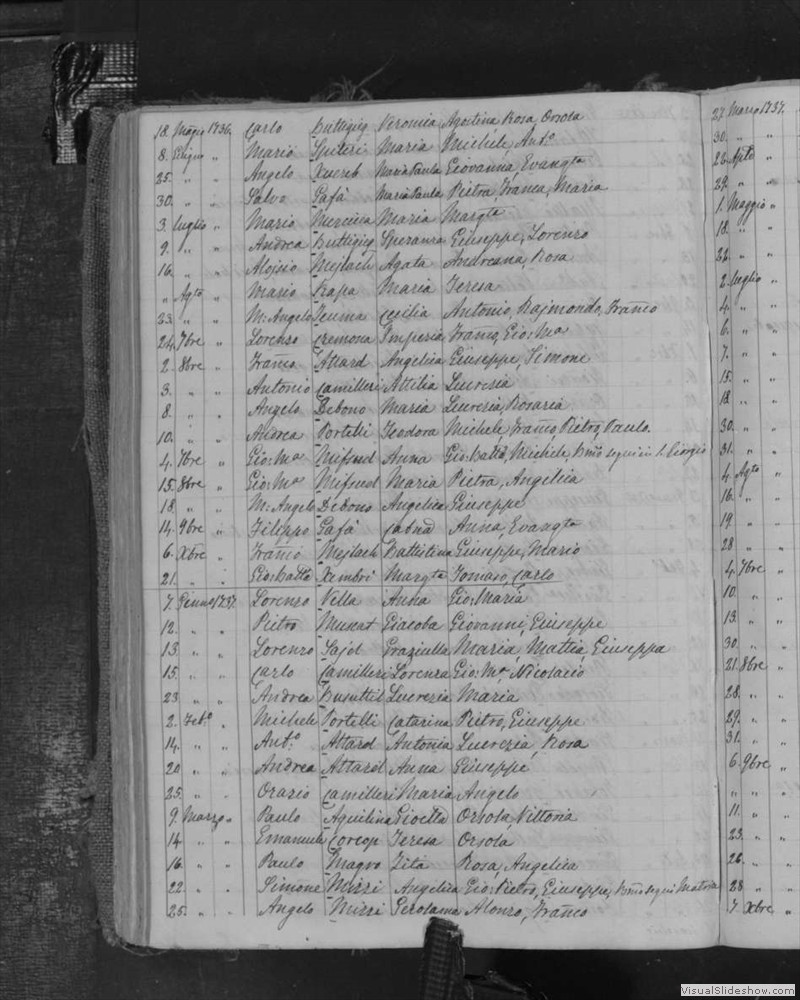 18. Magio 1736. Carlo Buttigieg Veronica Agostina, Rosa, Orsola
8. Giugno " Mario Spiteri Maria Michele, Ant.o
25. " " Angelo Xuereb Maria Paula Giovanna, Evangta
30. " " Salvo Gafà Maria Paula Pietra, Franca, Maria
3. Luglio " Mario Mercieca Maria Margta
9. " " Andrea Buttigieg Speranza Giuseppe, Lorenzo
16. " " Aloisio Mejlach Agata Andreana, Rosa
" Agto " Mario Rapa Maria Teresa
23. " " M: Angelo Xeuma Cecilia Antonio, Rajmondo, Franco
24. 7bre " Lorenzo Cremona Imperia Franco, Gio: Ma
2. 8bre " Franco Attard Angelica Giuseppe, Simone
3. " " Antonio Camilleri Attilia Lucresia
8. " " Angelo Debono Maria Lucrezia, Rosaria
10. " " Andrea Portelli Teodora Michele, Franco, Pietro, Paulo.
4. 7bre " Gio: Ma Mifsud Anna Gio: Batta, Michele, seguì in S. Giorgio
15. 8bre " Gio: Ma Mifsud Maria Pietra, Angelica
18. " " M: Angelo Debono Angelica Giuseppe
14. 9bre " Filippo Gafà Catna Anna, Evangta
6. Xbre " Franco Mejlach Battistina Giuseppe, Mario
21. " " Gio: Batta Xumbri Margta Tomaso, Carlo
7. Genno 1737. Lorenzo Vella Anna Gio: Maria
12. " " Pietro Muscat Giacoba Giovanni, Giuseppe
13. " " Lorenzo Sajd Graziulla Maria, Mattia, Giuseppa
15. " " Carlo Camilleri Lorenza Gio: Ma, Nicolacio
23 " " Andrea Busuttil Lucrezia Maria
2. Feb.o " Michele Portelli Catarina Pietro, Giuseppe
14. " " Ant.o Attard Antonia Lucrezia, Rosa
20 " " Andrea Attard Anna Giuseppe
25. " " Orazio Camilleri Maria Angelo
9. Marzo " Paulo Aquilina Gioetta Orsola, Vittoria
14 " " Emanuele Corcop Teresa Orsola
16. " " Paulo Magro Zita Rosa, Angelica
22. " " Simone Mizzi Angelica Gio: Pietro, Giuseppe, seguì Matrice
25. " " Angelo Mizzi Gerolama Alonzo, Franco
27. Marzo 1737.
30. " "
22. Aple "
29. " "
1. Maggio "
18. " "
22. " "
2. Luglio "
4. " "
6. " "
7. " "
15. " "
18 " "
30. " "
31. " "
4. Agto "
16. " "
19. " "
28 " "
4. 7bre "
10. " "
13. " "
30. " "
21. 8bre "
28. " "
29. " "
31. " "
6. 9bre "
" " "
11. " "
23. " "
26. " "
28 " "
7. Xbre "
VisualSlideshow.com